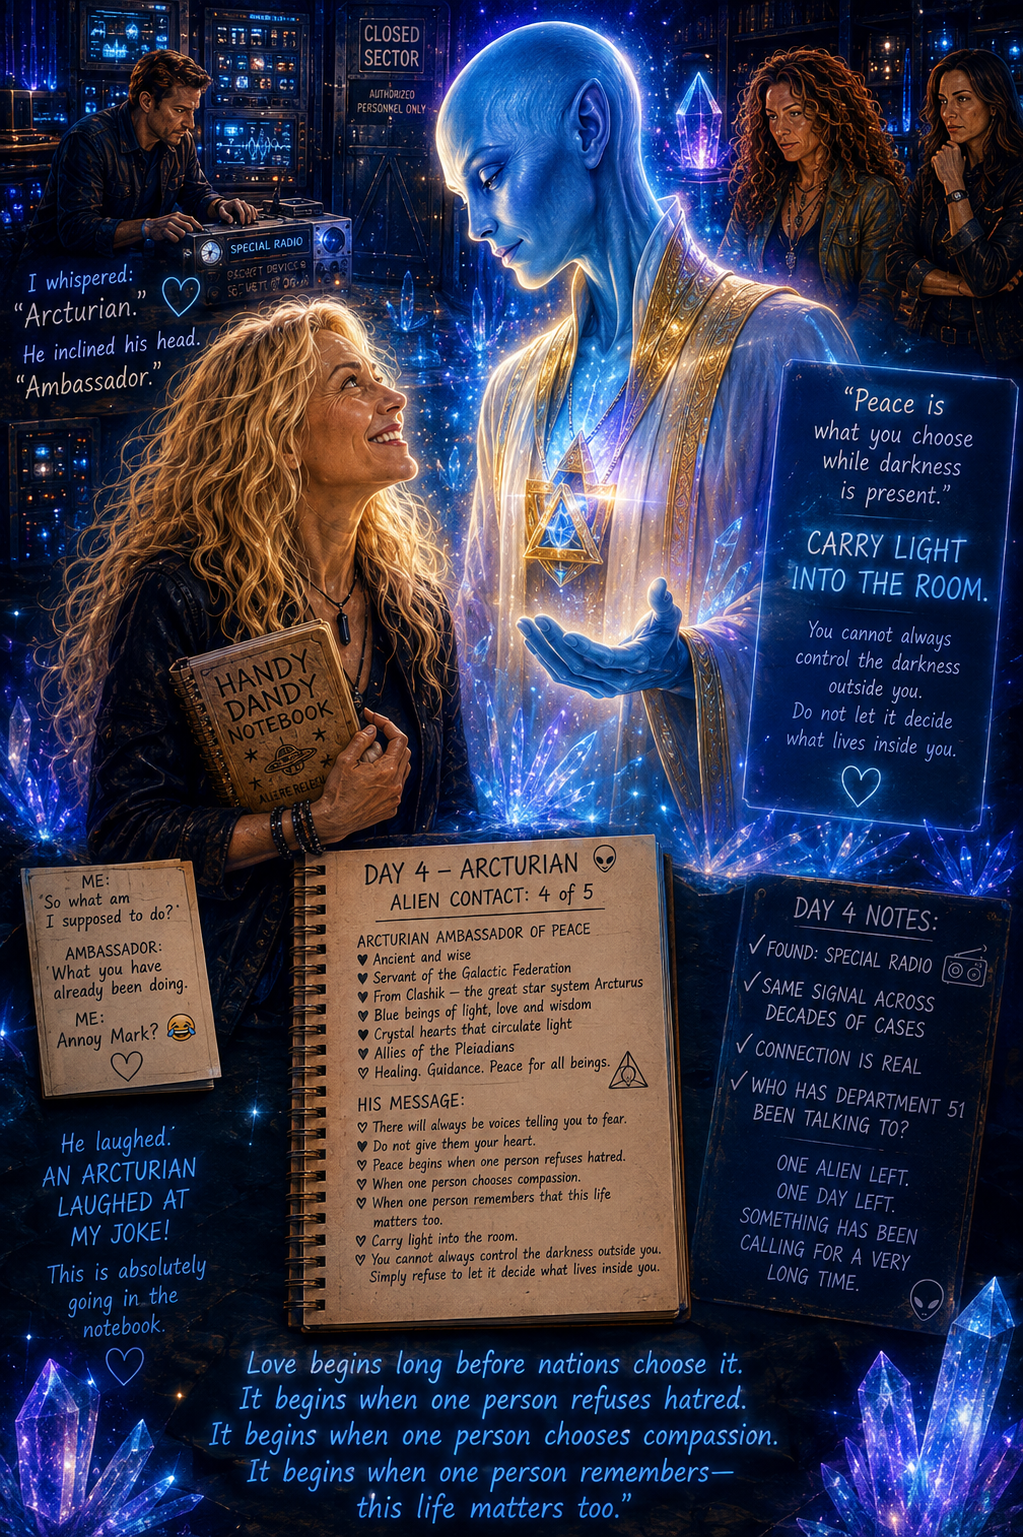 CLOSED
SECTOR
AUTHORIZED
PERSONNEL ONLY
SPECIAL RADIO
I whispered:
“Arcturian.”
He inclined his head.
“Ambassador.”
“Peace is
what you choose
while darkness
is present.”
CARRY LIGHT
INTO THE ROOM.
You cannot always
control the darkness
outside you.
Do not let it decide
what lives inside you.
HANDY
DANDY
NOTEBOOK
ME:
"So what am
I supposed to do?"
AMBASSADOR:
"What you have
already been doing.
ME:
Annoy Mark? 😂
He laughed.
AN ARCTURIAN
LAUGHED AT
MY JOKE!
This is absolutely
going in the
notebook.
DAY 4 – ARCTURIAN
ALIEN CONTACT: 4 of 5
ARCTURIAN AMBASSADOR OF PEACE
♥ Ancient and wise
♥ Servant of the Galactic Federation
♥ From Clashik — the great star system Arcturus
♥ Blue beings of light, love and wisdom
♥ Crystal hearts that circulate light
♥ Allies of the Pleiadians
♡ Healing. Guidance. Peace for all beings.
HIS MESSAGE:
♡ There will always be voices telling you to fear.
♥ Do not give them your heart.
♡ Peace begins when one person refuses hatred.
♡ When one person chooses compassion.
♡ When one person remembers that this life
matters too.
♡ Carry light into the room.
♡ You cannot always control the darkness outside you.
Simply refuse to let it decide what lives inside you.
DAY 4 NOTES:
✓ FOUND: SPECIAL RADIO
✓ SAME SIGNAL ACROSS
DECADES OF CASES
✓ CONNECTION IS REAL
✓ WHO HAS DEPARTMENT 51
BEEN TALKING TO?
ONE ALIEN LEFT.
ONE DAY LEFT.
SOMETHING HAS BEEN
CALLING FOR A VERY
LONG TIME.
Love begins long before nations choose it.
It begins when one person refuses hatred.
It begins when one person chooses compassion.
It begins when one person remembers—
this life matters too.”